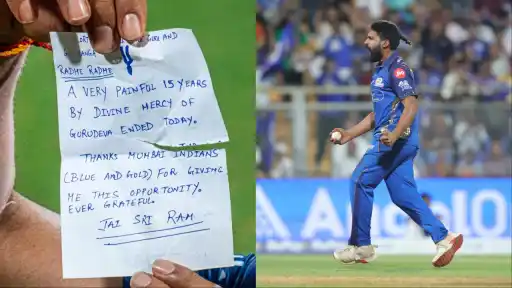 RADHE RADHE
A VERY PAINFUL 15 YEARS
BY DIVINE MERCY OF
GURUDEVA ENDED TODAY.
THANKS MUMBAI INDIANS
(BLUE AND GOLD) FOR GIVING
ME THIS OPPORTUNITY.
EVER GRATEFUL.
JAI SRI RAM
AngelO